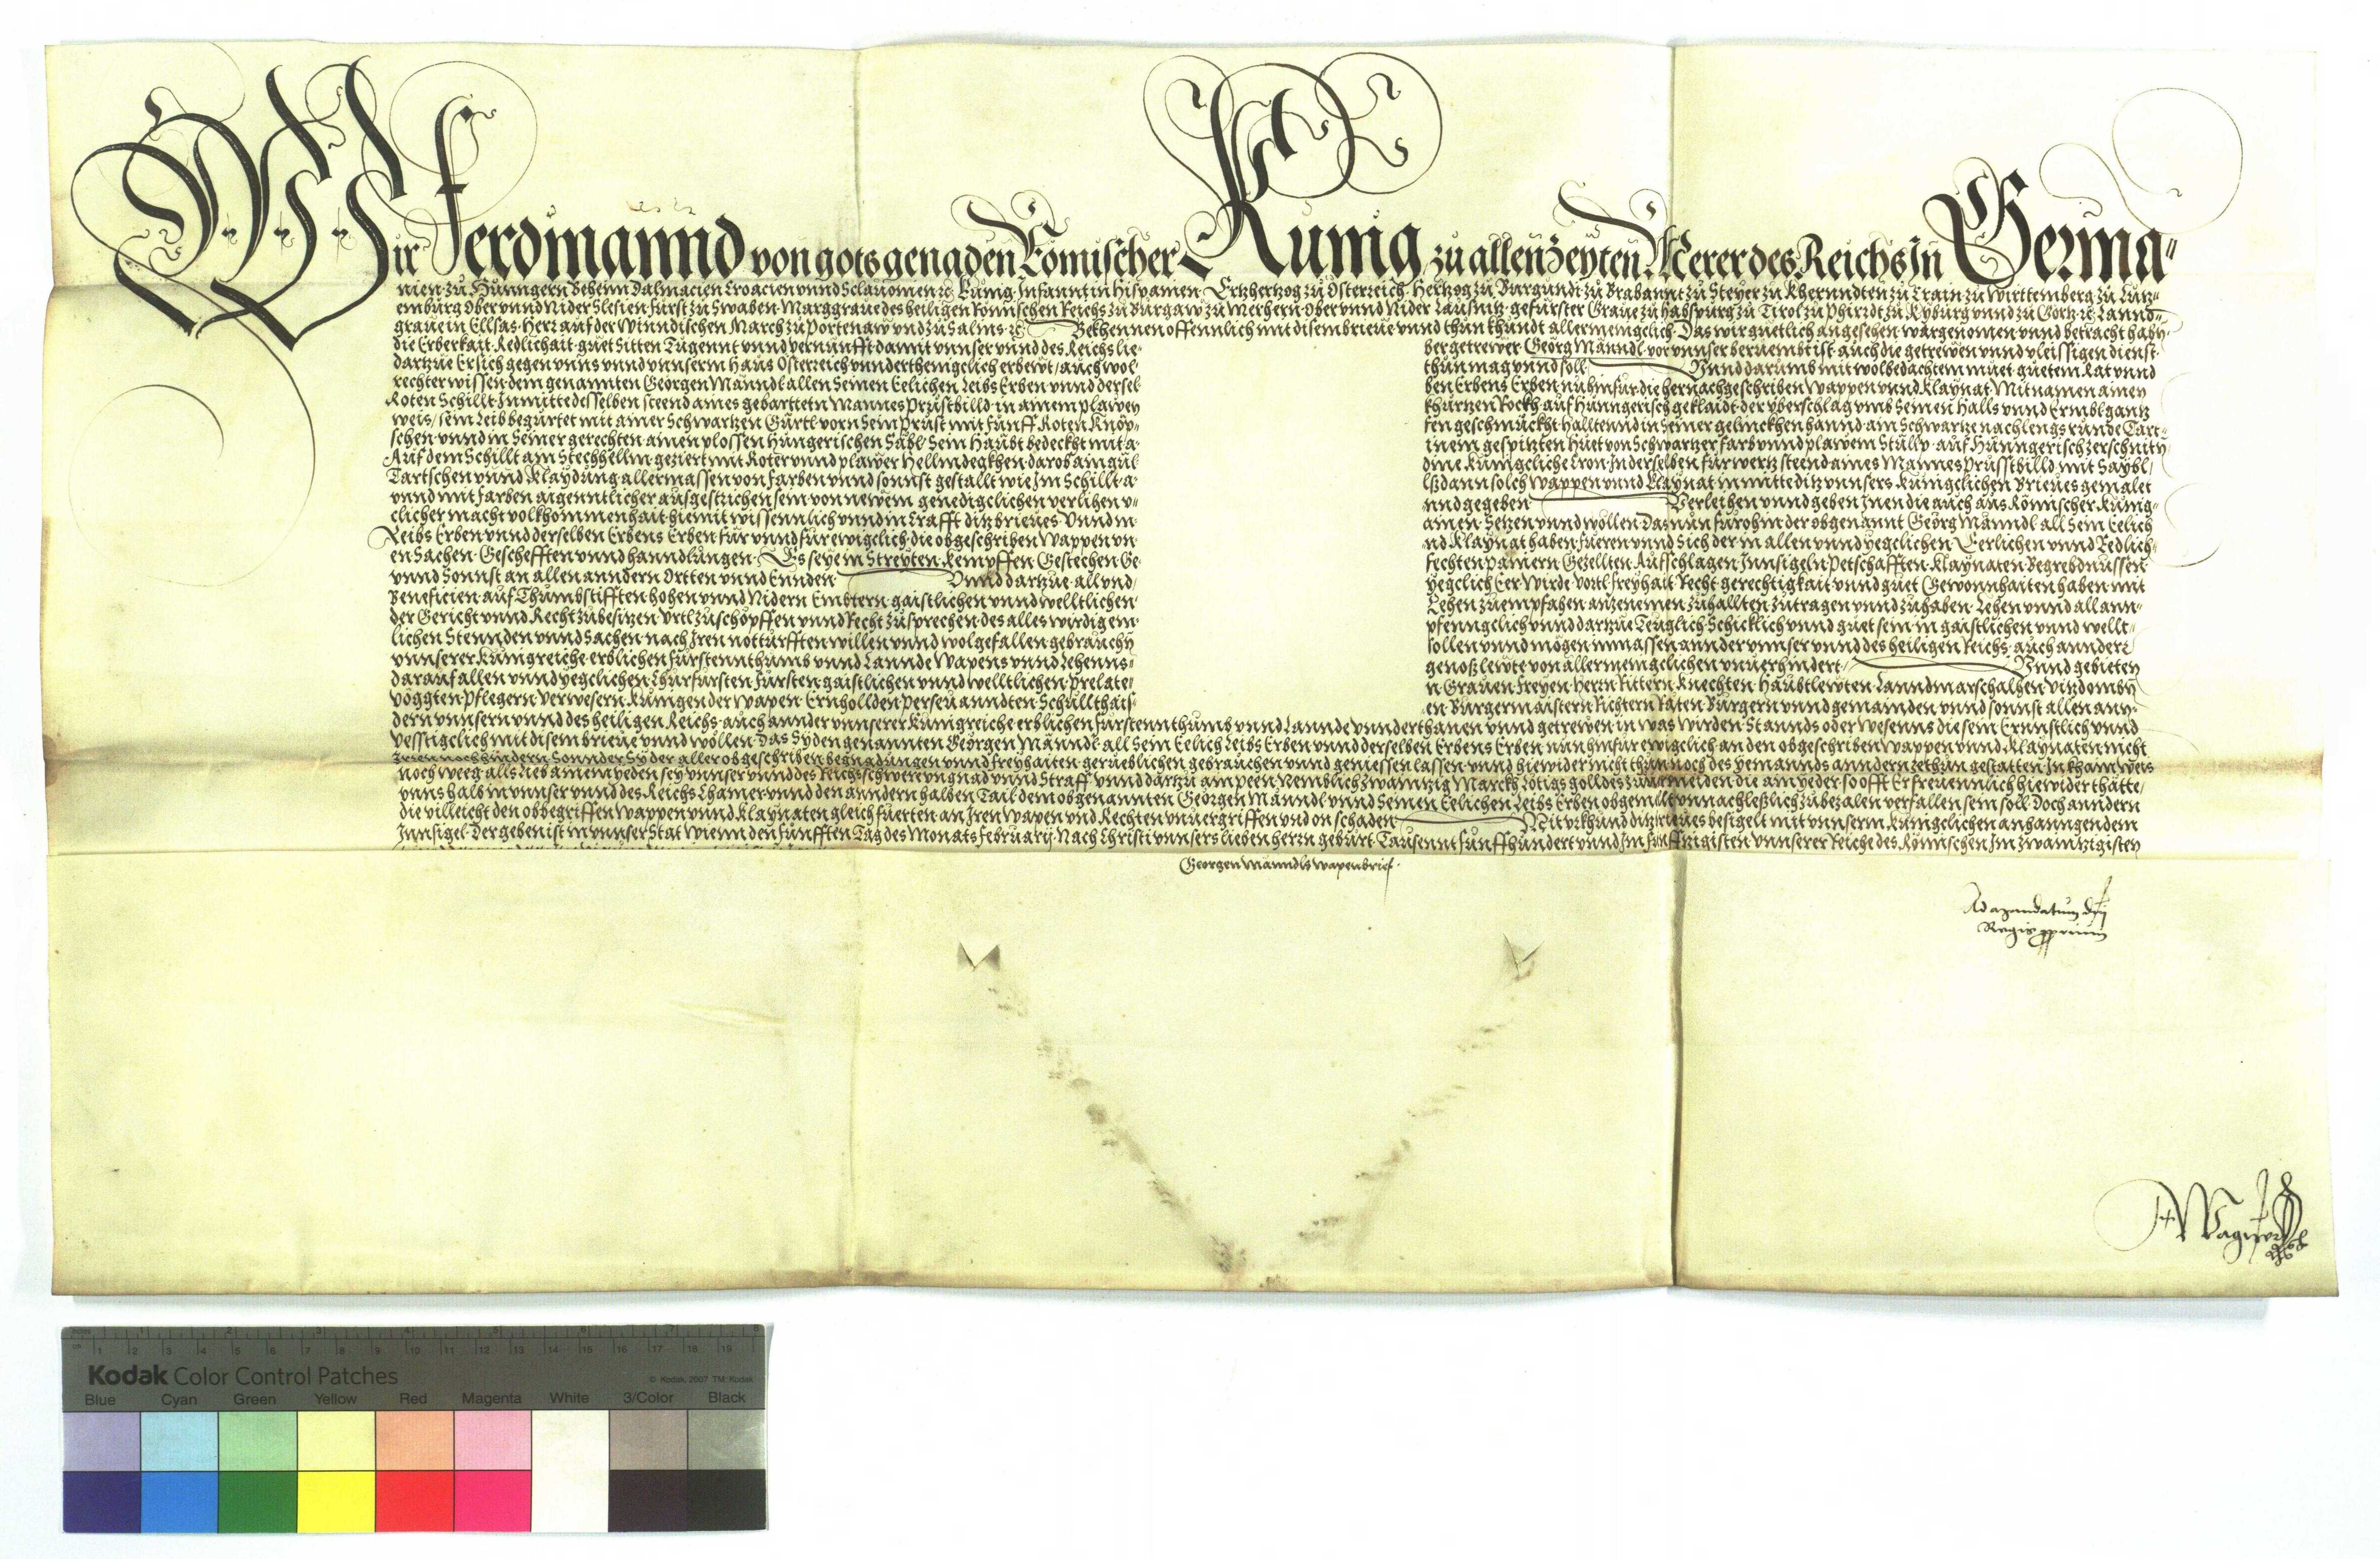 Wir Ferdinannd von gots genaden Römischer Kunig zu allen Zeyten Merer des Reichs In Germa-
nien zu Hunngern Behemn Dalmacien Croacien vnnd Sclauonien ꝛc Kunig Infannt in Hispanien Ertzhertzog zu Osterreich Hertzog zu Burgundi zu Brabannt zu Steyer zu Khernndten zu Crain zu Wirttemberg zu Lutz-
emburg Ober vnnd Nider Slesien Furst zu Swaben Marggraue des heiligen Römischen Reichs zu Burgaw zu Merhern Ober vnnd Nider Lausnitz gefurster Graue zu Habspurg zu Tirol zu Phirrdt zu Kyburg vnnd zu Gortz ꝛc Lannd-
graue in Ellsas Herr auf der Winndischen March zu Portenaw vnd zu Salms ꝛc Bekhennen offennlich mit disem brieue vnnd thun khundt allermeniglich Das wir guetlich angesehen wargenomen vnnd betracht haben
die Erberkait Redlichait guet Sitten Tugennt vnnd vernunfft damit vnnser vnnd des Reichs lie-
ber getrewer Georg Männdl vor vnnser beruembt ist auch die getrewen vnnd vleissigen dienst
dartzue Er sich gegen vnns vnnd vnnserm Haus Osterreich vnnderthenigclich erbewt auch wol
thun mag vnnd soll Vnnd darumb mit wolbedachtem muet guetem Rat vnnd
rechter wissen dem genannten Georgen Männdl allen Seinen Eelichen Leibs Erben vnnd dersel-
ben Erbens Erben nu hinfur die hernachgeschriben Wappen vnnd Klaynat Mit namen ainen
Roten Schillt Inmitte desselben steend aines gebartteten Mannes Prustbilld in ainem plawen
khurtzen Rockh auf Hunngerisch geklaidt der vberschlag vmb Seinen Halls vnnd Ermbl gantz
weis sein Leib begurtet mit ainer Schwartzen Gurtl vorn Sein Prust mit funff Roten Knöp-
fen geschmuckht Halltennd in Seiner gelinckhen hannd ain Schwartze nachlengs runde Tart-
schen vnnd in Seiner gerechten ainen plossen Hungerischen Säbl Sein Haubt bedeckht mit a-
inem gespitzten Huet von Schwartzer farb vnnd plawem Stulp auf Hunngerisch zerschniten
Auf dem Schillt ain Stechhellm geziert mit Roter vnnd plawer Hellmdegkhen darob ain gul-
dine Kunigcliche Cron In derselben furwertz steend aines Mannes Prusstbilld mit Säybl
Tartschen vnnd Klaydung allermassen von farben vnnd sonnst gestallt wie im Schillt a-
lß dann solch Wappen vnnd Klaynat in mitte ditz vnnsers Kunigclichen Brieues gemalet
vnnd mit farben aigenntlicher ausgestrichen sein von newem genedigclichen verlihen v-
nnd gegeben Verleihen vnnd geben Inen die auch aus Römischer Kunig-
clicher macht volkhommenhait hiemit wissennlich vnnd in Crafft ditz brieues Vnnd m-
ainen Setzen vnnd wöllen Das nun furohin der obgenannt Georg Männdl all Sein Eelich
Leibs Erben vnnd derselben Erbens Erben fur vnnd fur ewigclich die obgeschriben Wappen vn-
nd Klaynat haben fueren vnnd Sich der in allen vnnd yegclichen Eerlichen vnnd Redlich-
en Sachen Geschefften vnnd Hanndlungen Es seye in Streyten Kempffen Gestechen Ge-
fechten Panern Getzellten Aufschlagen Innsigeln Petschafften Klaynaten Begrebdnussen
vnnd Sonnst an allen anndern Ortten vnnd Ennden Vnnd dartzue all vnd
yegclich Eer Wirde Vortl freyhait Recht gerechtigkait vnnd guet Gewonnhaiten haben mit
Beneficien auf Thumbstifften hohen vnnd Nidern Embtern gaistlichen vnnd welltlichen
Lehen zu empfahen antzenemen zu hallten zu tragen vnnd zu haben Lehen vnnd all ann-
der Gericht vnnd Recht zu besitzen Vrtl zu schöpffen vnnd Recht zu sprechen des alles wirdig em-
pfenngclich vnnd dartzue Teuglich Schicklich vnnd guet sein in gaistlichen vnnd wellt-
lichen Stennden vnnd Sachen nach Iren notturfften willen vnnd wolgefallen gebrauchen
sollen vnnd mögen inmassen annder vnnser vnnd des heiligen Reichs auch annderer
vnnserer Kunigreiche erblichen Furstennthumb vnnd Lannde Wapens vnnd Lehenns-
genoß lewte von allermenigclichen vnuerhindert Vnnd gebieten
darauf allen vnnd yegclichen Churfursten Fursten gaistlichen vnnd welltlichen Prelate-
n Grauen Freyen Herrn Rittern Knechten Haubtlewten Lanndmarschalhen Vitzdomben
Vöggten Pflegern Verwesern Kunigen der Wapen Ernhollden Perseuanndten Schullthais-
en Burgermaistern Richtern Räten Burgern vnnd gemainden vnnd sonnst allen ann-
dern vnnsern vnnd des heiligen Reichs auch annder vnnserer Kunigreiche erblichen Furstennthumb vnnd Lannde vnnderthanen vnnd getrewen in was Wirden Stannds oder Wesenns die sein Ernnstlich vnnd
vesstigclich mit disem brieue vnnd wöllen Das Sy den genannten Georgen Männdl all Sein Eelich Leibs Erben vnnd derselben Erbens Erben nun hinfur ewigclich an den obgeschriben wappen vnnd Klaynaten nicht
Irren noch hindern Sonnder Sy der aller obgeschriben begnadungen vnnd freyhaiten geruehlichen gebrauchen vnnd geniessen lassen vnnd hiewider nicht thun noch des yemannds anndern zethun gestatten In khain weis
noch weeg alls lieb ainem yeden sey vnnser vnnd des Reichs schwere vngnad vnnd Straff vnnd dartzu ain peen Nemblich Zwaintzig Marckh Lötigs golldes zuuermeiden die ain yeder so offt Er freuennlich hiewider thätte
vnns halb in vnnser vnnd des Reichs Chamer vnnd den anndern halben Tail dem obgenannten Georgen Männdl vnnd Seinen Eelichen Leibs Erben obgemelt vnnachleßlich zu bezalen verfallen sein soll Doch anndern
die villeicht den obbegriffen Wappen vnnd Klaynaten gleich fuerten an Iren Wapen vnd Rechten vnuergriffen vnd on schaden Mit vrkhund ditz brieues besigelt mit vnnserm Kunigclichen anhanngendem
Innsigel Der geben ist in vnnser Stat Wienn den Funfften Tag des Monats Februarij Nach Christi vnnsers lieben herrn geburt Tausennt Funffhundert vnnd im funfftzigisten vnnserer Reiche des Römischen im zwaintzigisten
Georgen Männdls wapenbrief.
Ad mandatum dñi
Regis pprium
Kodak Color Control Patches
© Kodak, 2007 TM: Kodak
Blue Cyan Green Yellow Red Magenta White 3/Color Black